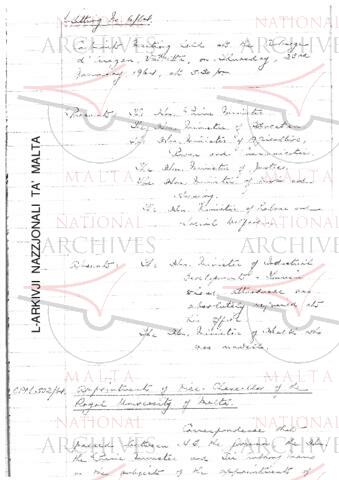 Sitting No. 6/64.
Cabinet Meeting held at the Auberge
d'Aragon, Valletta, on Thursday, 23rd
January 1964, at 5.30 pm
Present: The Hon. Prime Minister
The Hon. Minister of Education
The Hon. Minister of Agriculture,
Power and Communications
The Hon. Minister of Justice
The Hon. Minister of Works and
Housing.
The Hon. Minister of Labour and
Social Welfare.
Absent: The Hon. Minister of Industrial
Development & Tourism
whose attendance was
absolutely required at
his office
The Hon. Minister of Health who
was unwell.
C.M.L. 552/64. Appointment of Vice-Chancellor of the
Royal University of Malta.
Correspondence that
passed between H.E. the Governor, the Hon.
the Prime Minister and Sir
on the subject of the appointment of
L-ARKIVJI NAZZJONALI TA' MALTA
NATIONAL
ARCHIVES
MALTA
NATIONAL
ARCHIVES
MALTA
NATIONAL
ARCHIVES
MALTA
NATIONAL
ARCHIVES
MALTA
NATIONAL
ARCHIVES
MALTA
NATIONAL
ARCHIVES